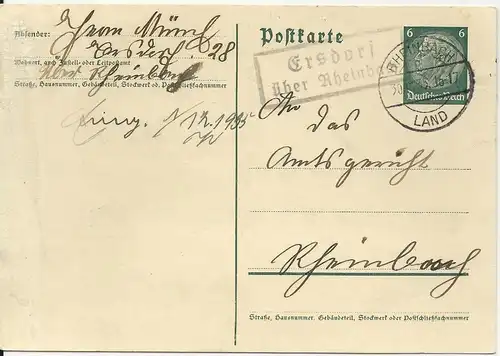 Absender: Herm Münch
Ersdorf 28
Wohnort, auch Zustell- oder Leitpostamt
über Rheinbach
Straße, Hausnummer, Gebäudeteil, Stockwerk od. Postschließfachnummer
Eing. 1/12.1935
Postkarte
Ersdorf
über Rheinba
RHEINBACH
LAND
6 6
Deutsches Reich
An
das
Amtsgericht
Rheinbach
Straße, Hausnummer, Gebäudeteil, Stockwerk oder Postschließfachnummer